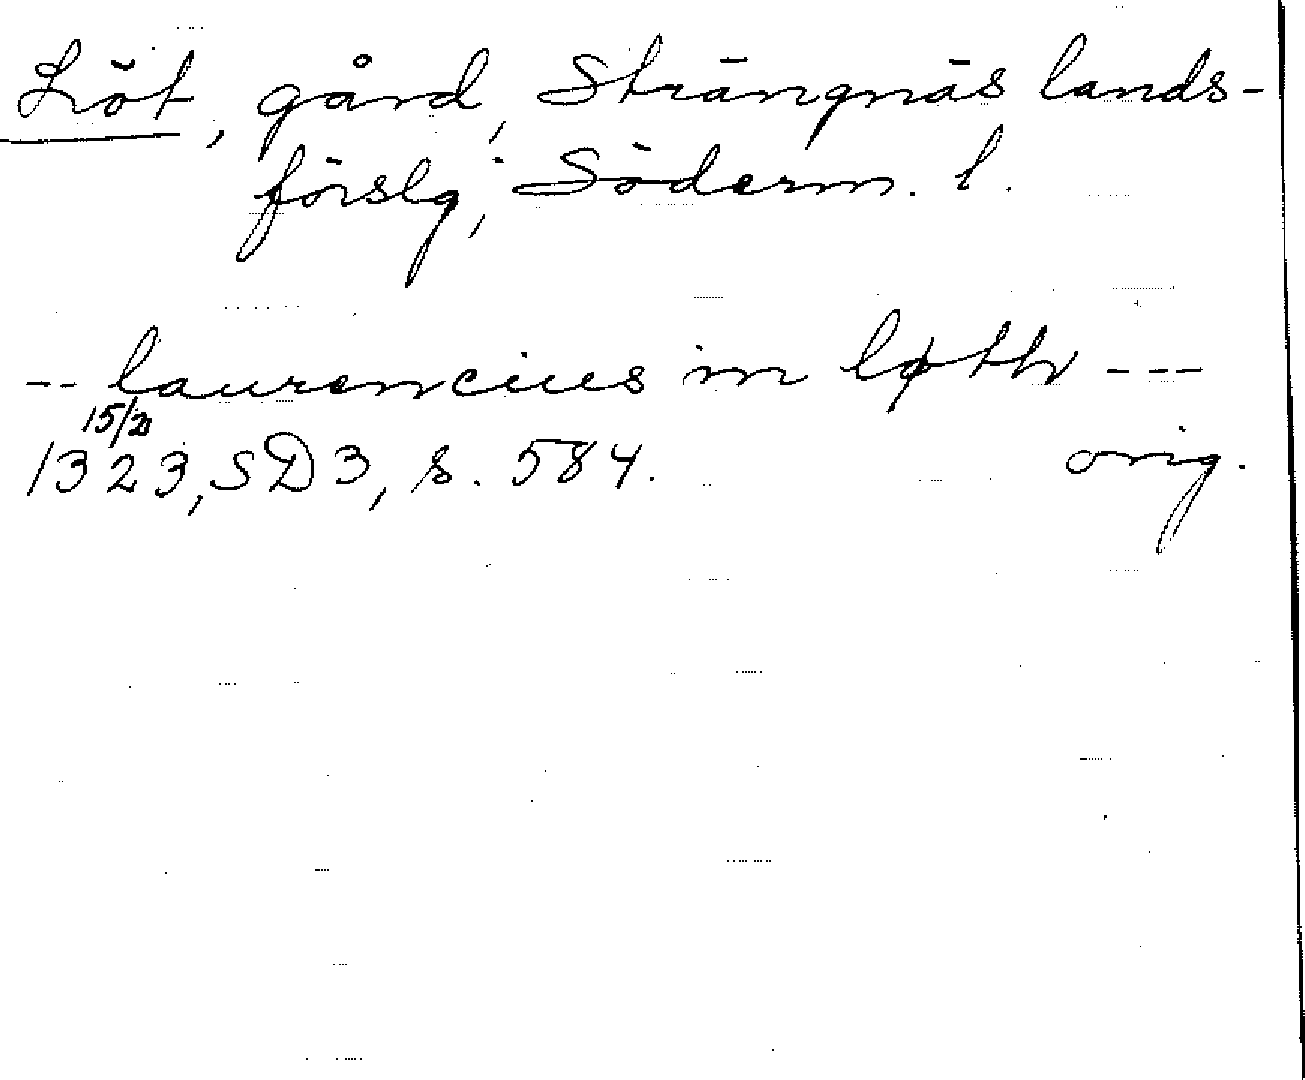 Löt, gård, Strängnäs lands-
förslg, Söderm. l.
-- laurencius in løth ---
15/
1323, SD3, s. 584. orig.